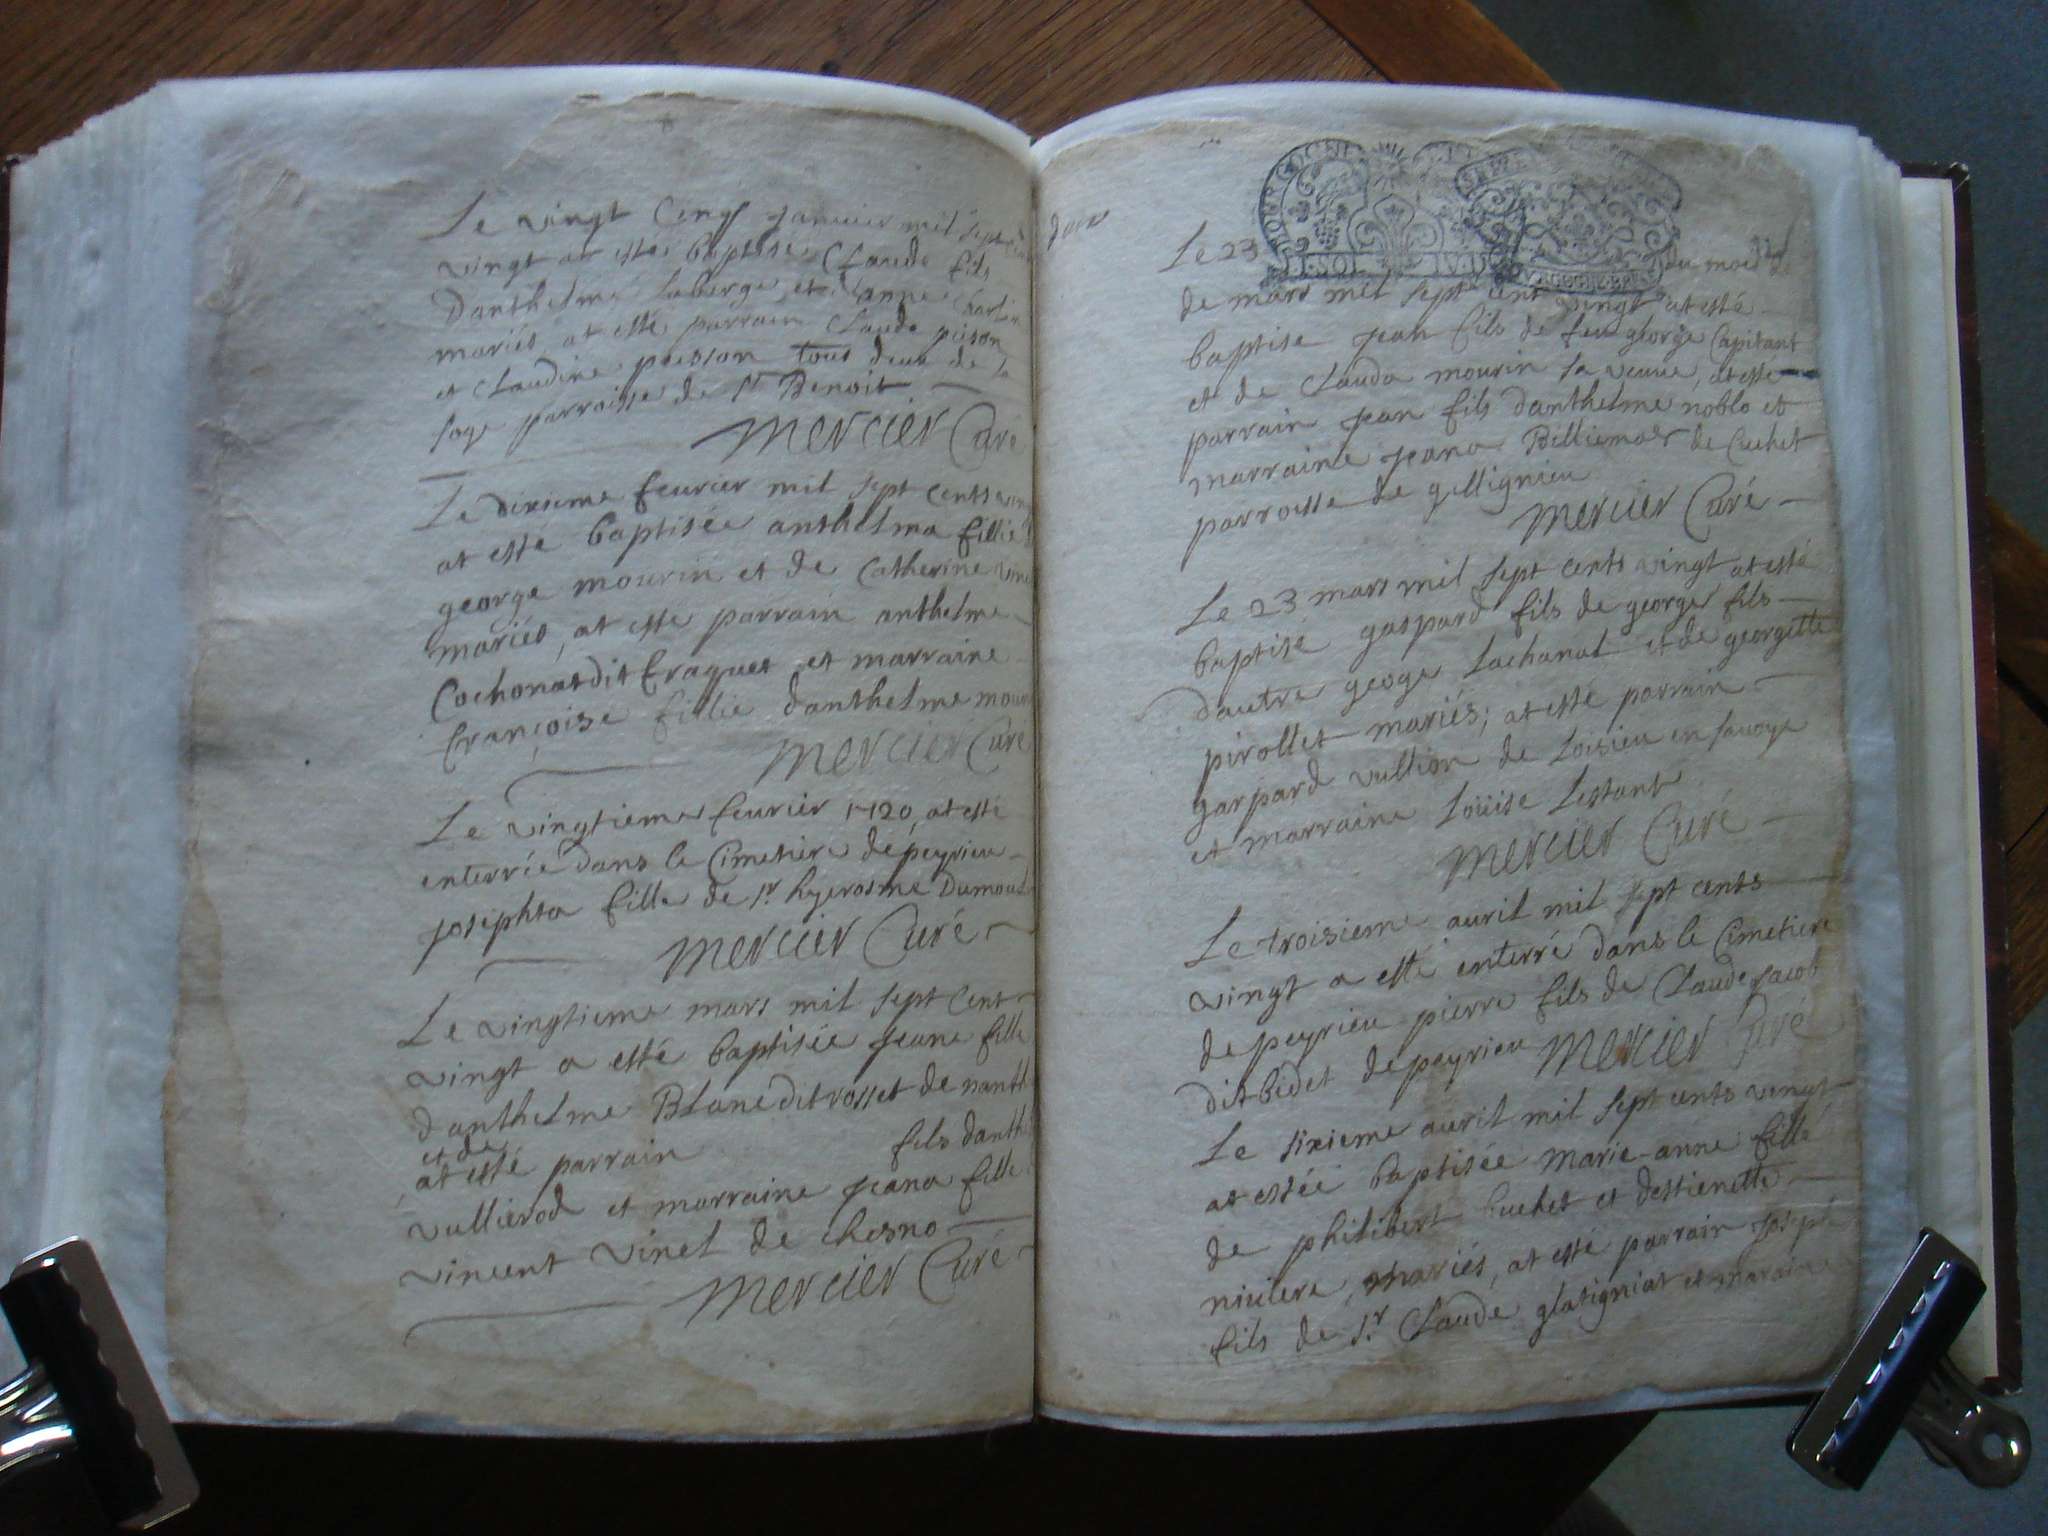 Le vingt Cinq janvier mil sept
vingt at esté baptisé Claude fils
Danthelme Laberge et anne
mariés at esté parrain Claude poison
et Claudine poisson tous deux de la
paroisse de St Benoit
mercier Curé
Le dixieme feurier mil sept cents
at esté baptisée anthelma fillie
george mourin et de Catherine
mariés, at esté parrain anthelme
Cochonat dit fraquet et marraine
françoise fillie danthelme
mercier Curé
Le vingtieme feurier 1720, at esté
enterrée dans le Cimetiere de peyrieu
josephta fille de Sr hyerosme
mercier Curé
Le vingtieme mars mil sept cent
vingt a esté baptisée jeane fille
danthelme Blanc dit rosset de
et de
at esté parrain fils
vullierod et marraine jeana fille
vincent vinel de Chesno
mercier Curé
Le 23 du mois
de mars mil sept cent vingt at esté
baptise jean fils de feu george Capitant
et de Clauda mourin sa veuue, at esté
parrain jean fils danthelme noblo et
marraine jeana Billiemas de Cuchet
parroisse de gellignieu
mercier Curé
Le 23 mars mil sept cents vingt at esté
baptisé gaspard fils de george fils
dautre geoge Lachanal et de georgette
pirollet mariés; at esté parrain
gaspard vullion de Loisieu en savoye
et marraine Loüise Lestant
mercier Curé
Le troisieme auril mil sept cents
vingt a esté enterré dans le Cimetiere
de peyrieu pierre fils de Claude jacob
dit bidet de peyrieu mercier Curé
Le sixieme auril mil sept cents vingt
at estée baptisée marie-anne fille
de philibert Cuchet et destienette
niviere, mariés, at esté parrain joseph
fils de Sr Claude glatigniat et maraine